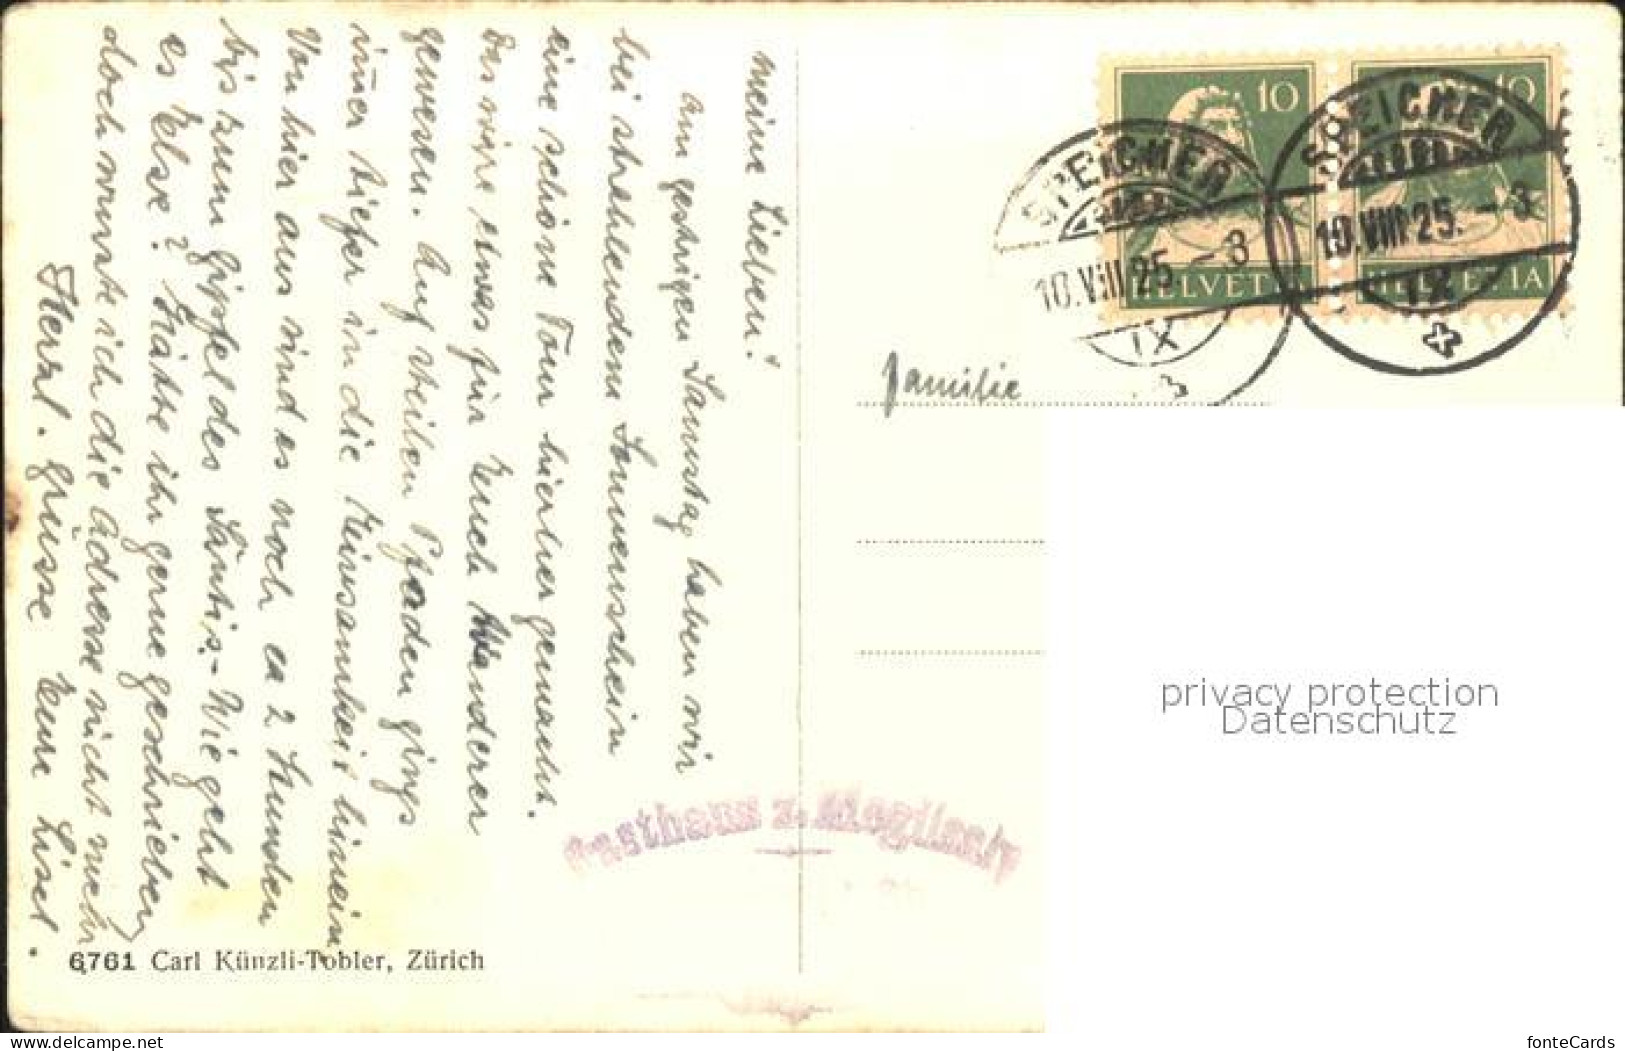 meine Lieben!
Am gestrigen Samstag haben wir
bei strahlendem Sonnenschein
eine schöne Tour hierher gemacht.
Das wäre etwas für Euch Wanderer
gewesen. Auf steilen Pfaden gings
im̅er tiefer in die Einsamkeit hinein
Von hier aus sind es noch ca 2 Stunden
bis zum Gipfel des Säntis. - Wie geht
es Else? Hätte ihr gerne geschrieben
doch wusste ich die Adresse nicht mehr
Herzl. Grüsse Eure Lisel.
6761 Carl Künzli-Tobler, Zürich
Gasthaus z.
10
10
HELVETIA
HELVETIA
SPEICHER
10.VIII.25.-3
IX
SPEICHER
10.VIII.25.-3
IX
Familie
privacy protection
Datenschutz
www.delcampe.net
fonteCards